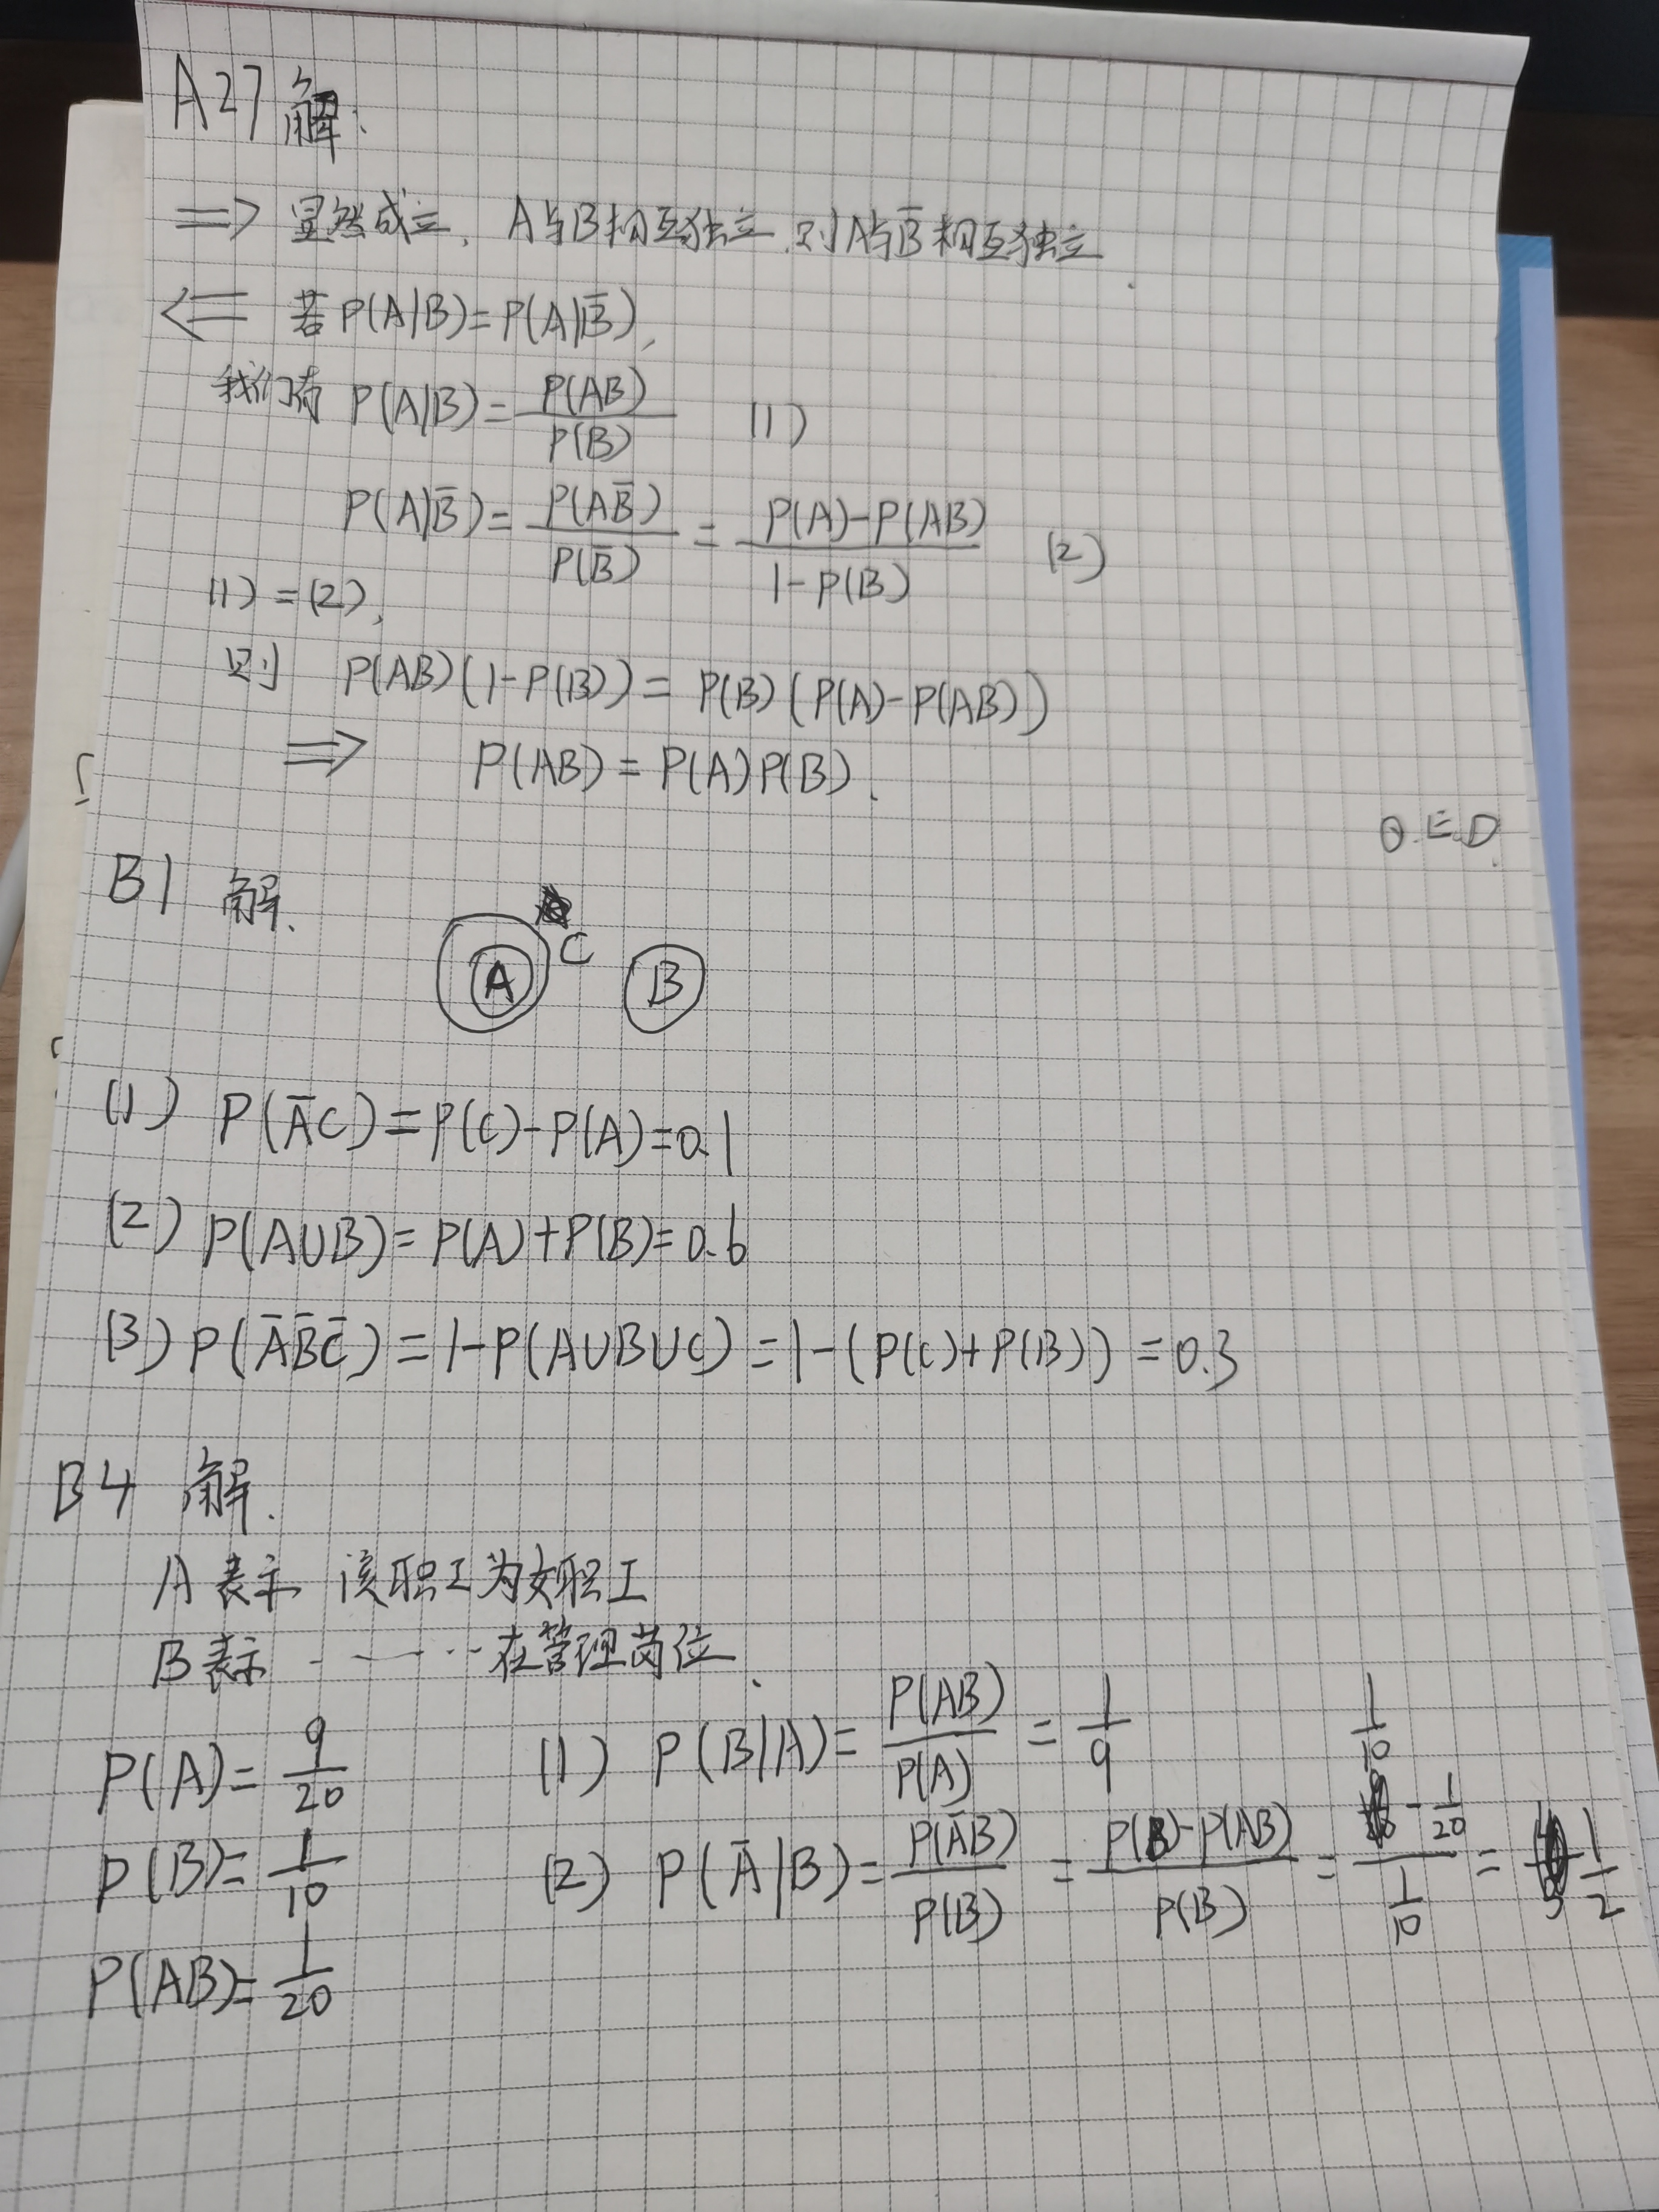 A27 解:
⇒ 显然成立, A与B相互独立,则A与B̄相互独立.
⇐ 若P(A|B)=P(A|B̄),
我们有 P(A|B)=P(AB)/P(B) (1)
P(A|B̄)=P(AB̄)/P(B̄)=(P(A)-P(AB))/(1-P(B)) (2)
(1)=(2),
则 P(AB)(1-P(B))=P(B)(P(A)-P(AB))
⇒ P(AB)=P(A)P(B).
Q.E.D.
B1 解.
A C B
(1) P(ĀC)=P(C)-P(A)=0.1
(2) P(A∪B)=P(A)+P(B)=0.6
(3) P(ĀB̄C̄)=1-P(A∪B∪C)=1-(P(C)+P(B))=0.3
B4 解.
A表示 该职工为女职工
B表示 ······在管理岗位.
P(A)=9/20 (1) P(B|A)=P(AB)/P(A)=1/9
P(B)=1/10 (2) P(Ā|B)=P(ĀB)/P(B)=(P(B)-P(AB))/P(B)=(1/10-1/20)/(1/10)=1/2
P(AB)=1/20